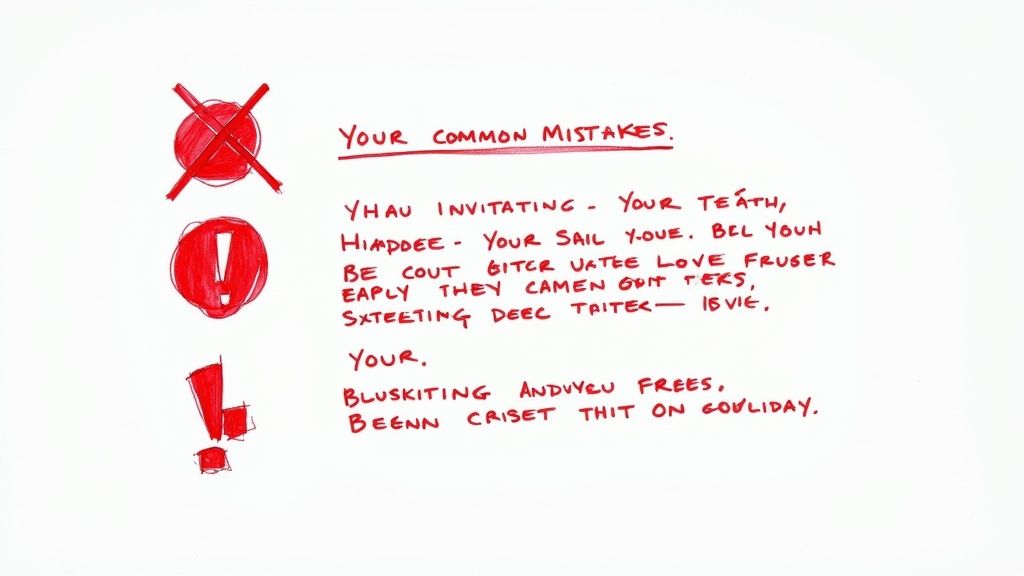 YOUR COMMON MISTAKES.
YHAU INVITATING - YOUR TEÁTH,
HIAPDOEE - YOUR SAIL Y-OUE. BEL YOUH
BE COUT BITCR UATEE LOVE FRUSER
EAPLY THEY CAMEN GOIT TEKS,
SXTEETING DEEC TAITEC— IEVIE.
YOUR.
BLUSKITING ANDVYEU FREES.
BEENN CRISET THIT ON GOVLIDAY.